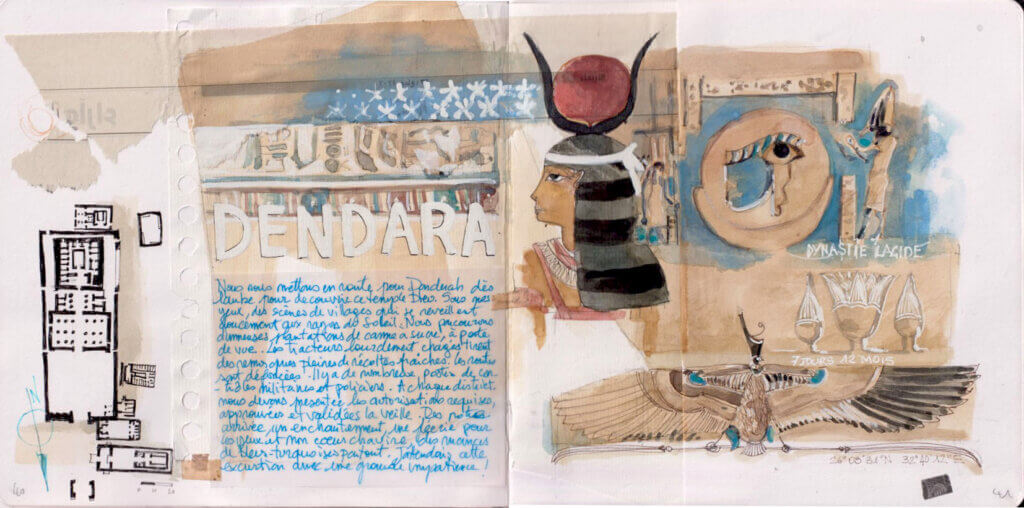 DENDARA
Nous nous mettons en route pour Denderah dès
l'aube pour découvrir ce temple Bleu. Sous mes
yeux, des scènes de villages qui se réveillent
doucement aux rayons du soleil. Nous parcourons
d'immenses plantations de canne à sucre, à perte
de vue. Les tracteurs lourdement chargés tirent
des remorques pleines de récoltes fraîches. les routes
sont défoncées. Il y a de nombreux postes de con-
trôles militaires et policiers. A chaque district,
nous devons présenter les autorisations requises,
approuvées et validées la veille. Dès notre
arrivée, un enchantement, une féerie pour
les yeux et mon cœur chavire, des nuances
de bleus-turquoises partout. J'attendais cette
excursion avec une grande impatience !
DYNASTIE LAGIDE
7 JOURS 12 MOIS
N